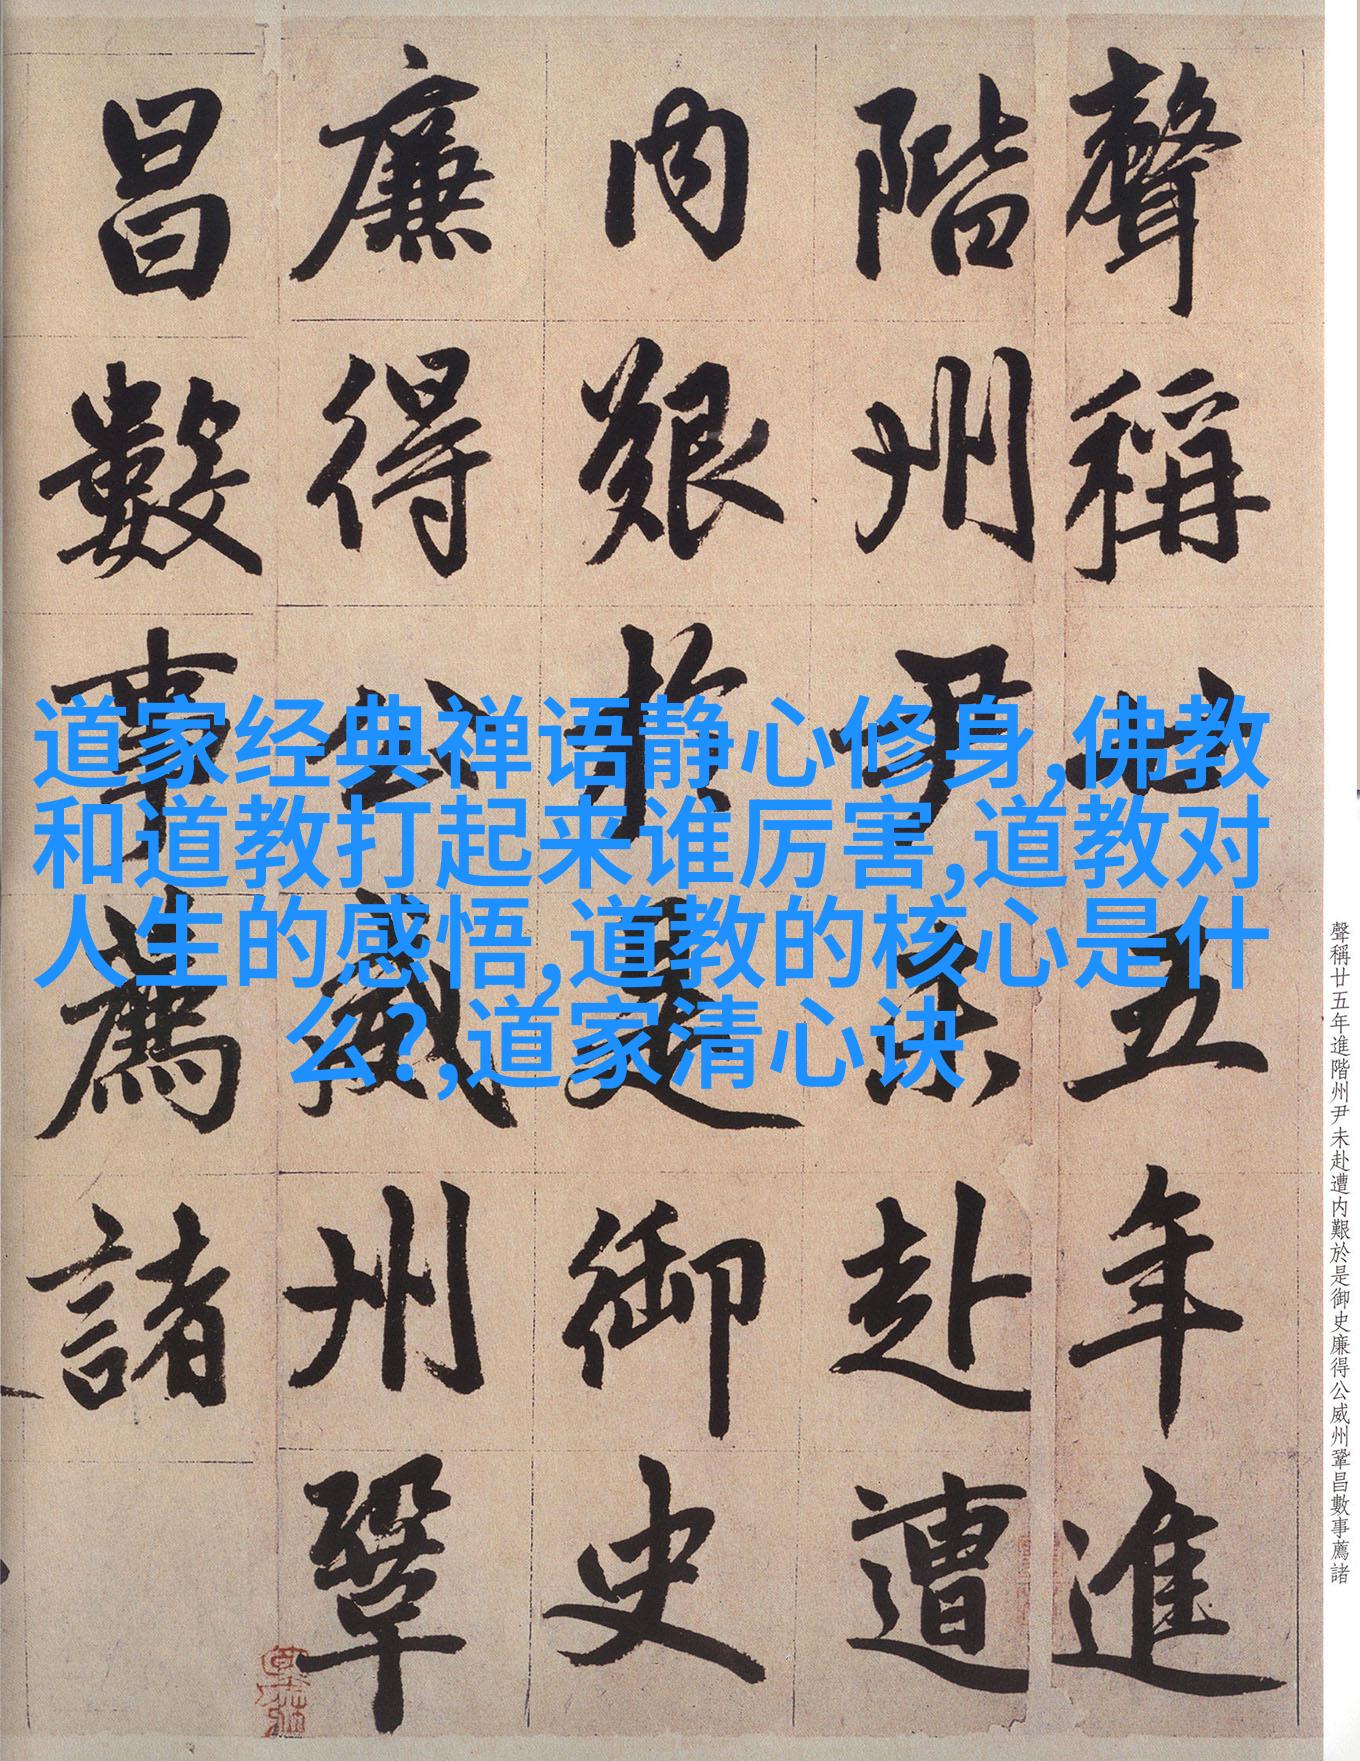 聲稱廿五年進
階州尹未赴遭
内艱於是御史
廉得公威州鞏
昌數事薦諸
道家经典禅语静心修身,佛教
和道教打起来谁厉害,道教对
人生的感悟,道教的核心是什
么?,道家清心诀
聲稱廿五年進階州尹未赴遭内艱於是御史廉得公威州鞏昌數事薦諸